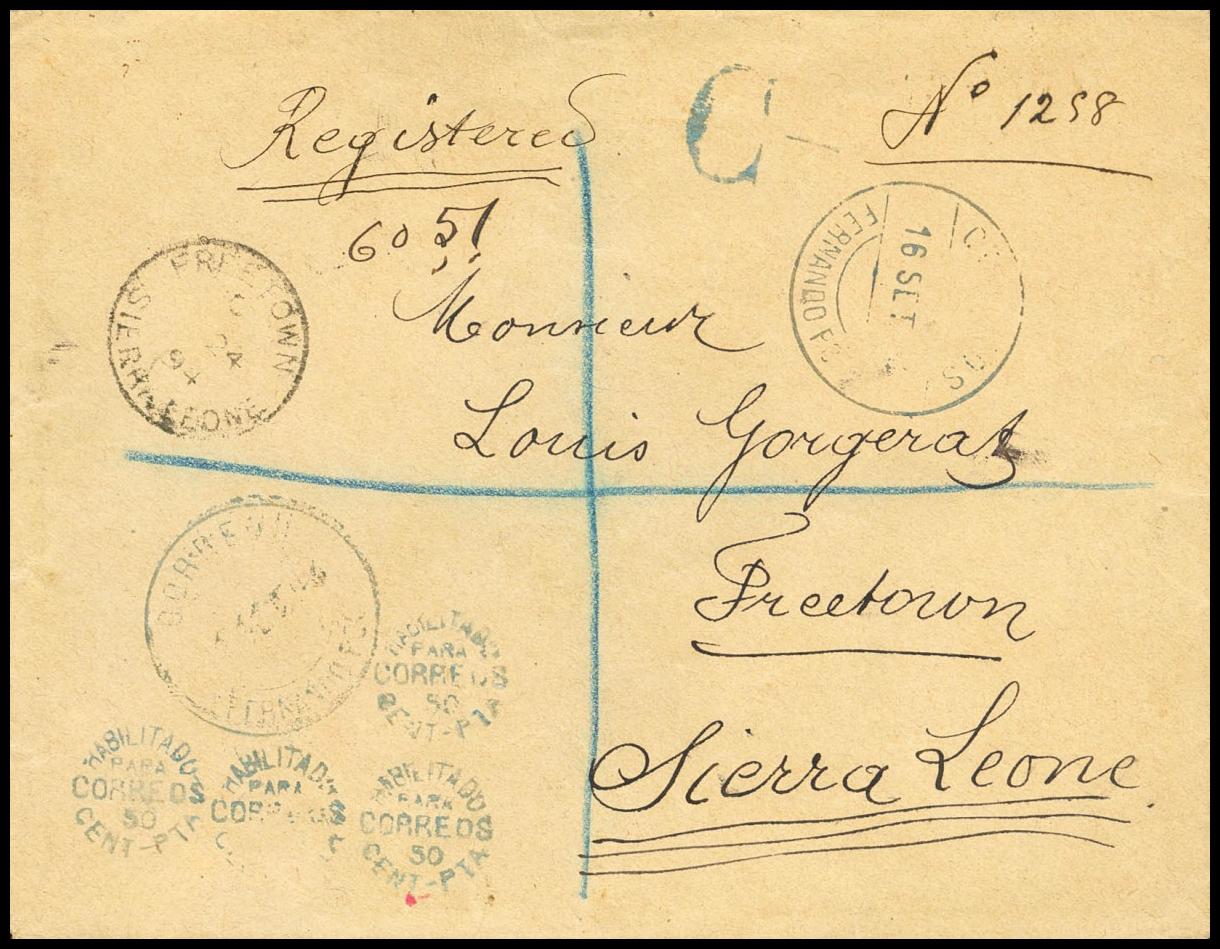 Registered
C
Nº 1258
60 51
FREETOWN
SIERRA-LEONE
94
16 SET
FERNANDO
Monsieur
Louis Gorgerat
Freetown
Sierra Leone
CORREOS
HABILITADO
PARA
CORREOS
50
CENT-PTA
HABILITADO
PARA
CORREOS
50
CENT-PTA
HABILITADO
PARA
CORREOS
HABILITADO
PARA
CORREOS
50
CENT-PTA